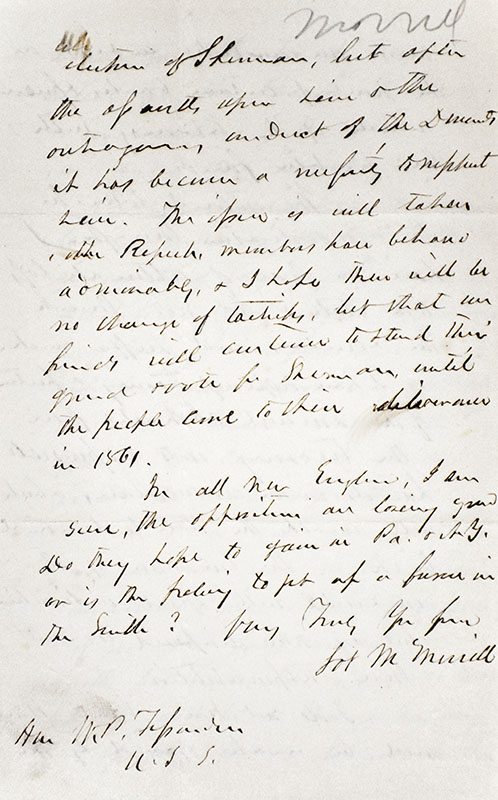 Morrill
election of Sherman, but after
the assaults upon him & the
outrageous conduct of the Democrats
it has become a necessity to support
him. The issue is well taken
& the Repub. members have behaved
admirably, & I hope there will be
no change of tactics, but that our
friends will continue to stand their
ground & vote for Sherman, until
the people come to their deliverance
in 1861.
In all New England, I am
sure, the opposition are losing ground
Do they hope to gain in Pa. & N.Y.
or is the feeling to get up a furor in
the South? Very Truly Yr frnd
Lot M Morrill
Hon W. P. Fessenden
U. S. S.